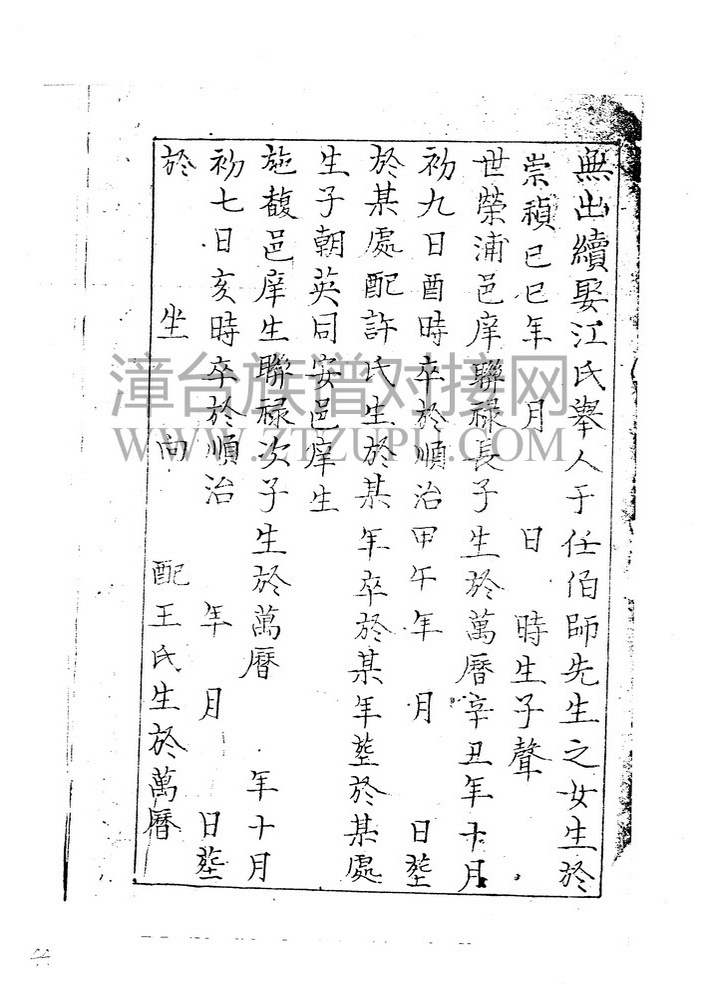 無出續娶江氏舉人于任伯師先生之女生於
崇禎己巳年　月　日　時生子聲
世榮浦邑庠聯祿長子生於萬曆辛丑年十月
初九日酉時卒於順治甲午年　月　日塟
於某處配許氏生於某年卒於某年塟於某處
生子朝英同安邑庠生
施馥邑庠生聯祿次子生於萬曆　年十月
初七日亥時卒於順治　年　月　日塟
於　坐　向　配王氏生於萬曆
漳台族谱对接网
WWW.ZTZUPU.COM